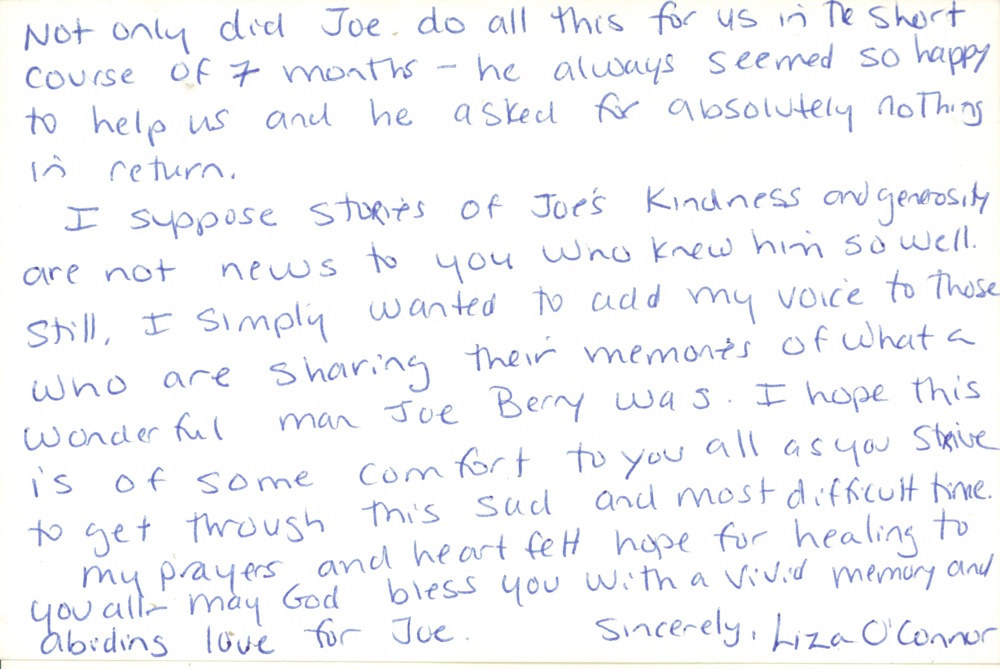 Not only did Joe do all this for us in the short
course of 7 months - he always seemed so happy
to help us and he asked for absolutely nothing
in return.
I suppose stories of Joe's kindness and generosity
are not news to you who knew him so well.
Still, I simply wanted to add my voice to those
who are sharing their memories of what a
wonderful man Joe Berry was. I hope this
is of some comfort to you all as you strive
to get through this sad and most difficult time.
My prayers and heartfelt hope for healing to
you all - may God bless you with a vivid memory and
abiding love for Joe.
Sincerely, Liza O'Connor